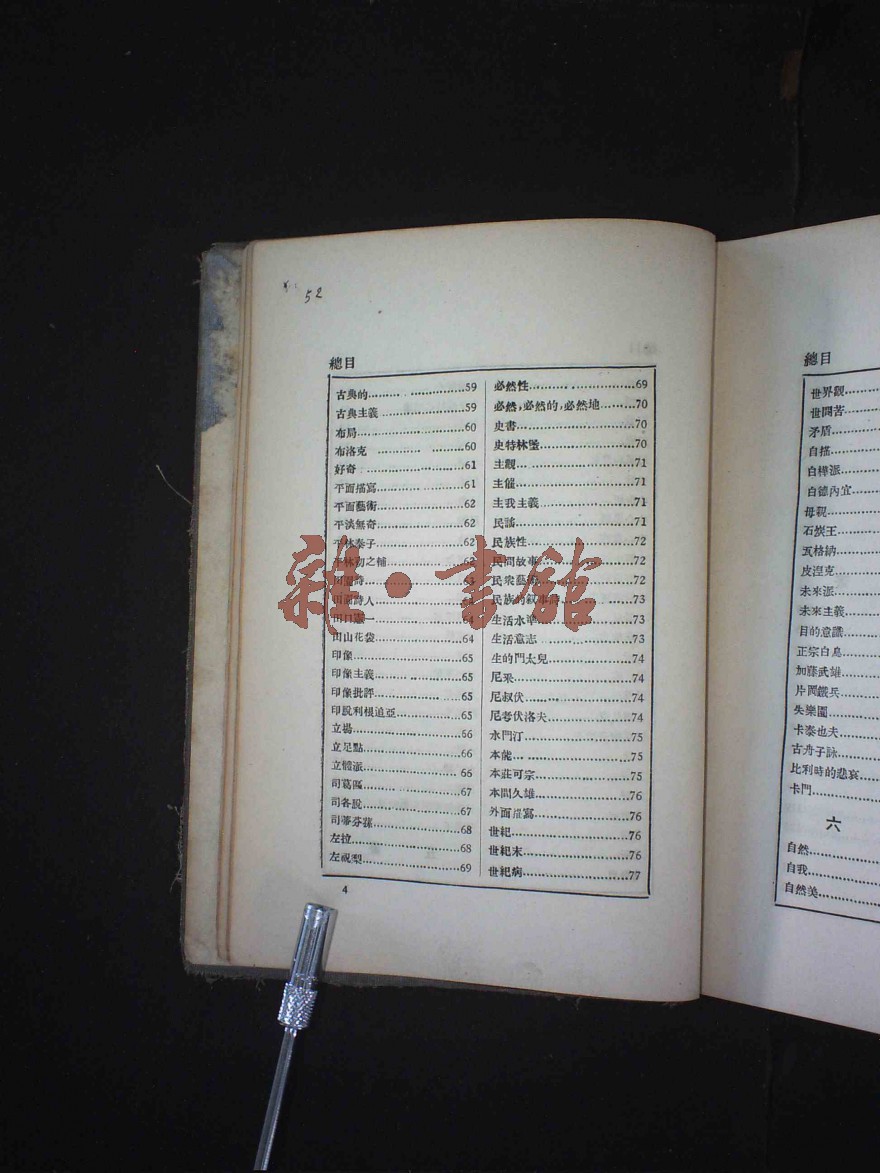 52
總目
古典的……………59
古典主義……………59
布局……………60
布洛克……………60
好奇……………61
平面描寫……………61
平面藝術……………62
平淡無奇……………62
平林泰子……………62
平林初之輔……………62
田園詩……………63
田園詩人……………63
田口憲一……………64
田山花袋……………64
印像……………65
印像主義……………65
印像批評……………65
印貌利根追亞……………65
立場……………66
立足點……………66
立體派……………66
司葛區……………67
司各脫……………67
司蒂芬蓀……………68
左拉……………68
左祝梨……………69
必然性……………69
必然,必然的,必然地………70
史書……………70
史特林堡……………70
主觀……………71
主催……………71
主我主義……………71
民謠……………71
民族性……………72
民間故事……………72
民衆藝術……………72
民族的叙事詩……………73
生活水準……………73
生活意志……………73
生的門太兒……………74
尼采……………74
尼叔伏……………74
尼考伏洛夫……………74
水門汀……………75
本能……………75
本莊可宗……………75
本間久雄……………76
外面描寫……………76
世紀……………76
世紀末……………76
世紀病……………77
4
雜·書館
總目
世界觀
世間苦
矛盾
自描
白樺派
白德內宜
母親
石炭王
瓦格納
皮涅克
未來派
未來主義
目的意識
正宗白鳥
加藤武雄
片岡鐵兵
失樂園
卡泰也夫
古舟子詠
比利時的悲哀
卡門
六
自然
自我
自然美